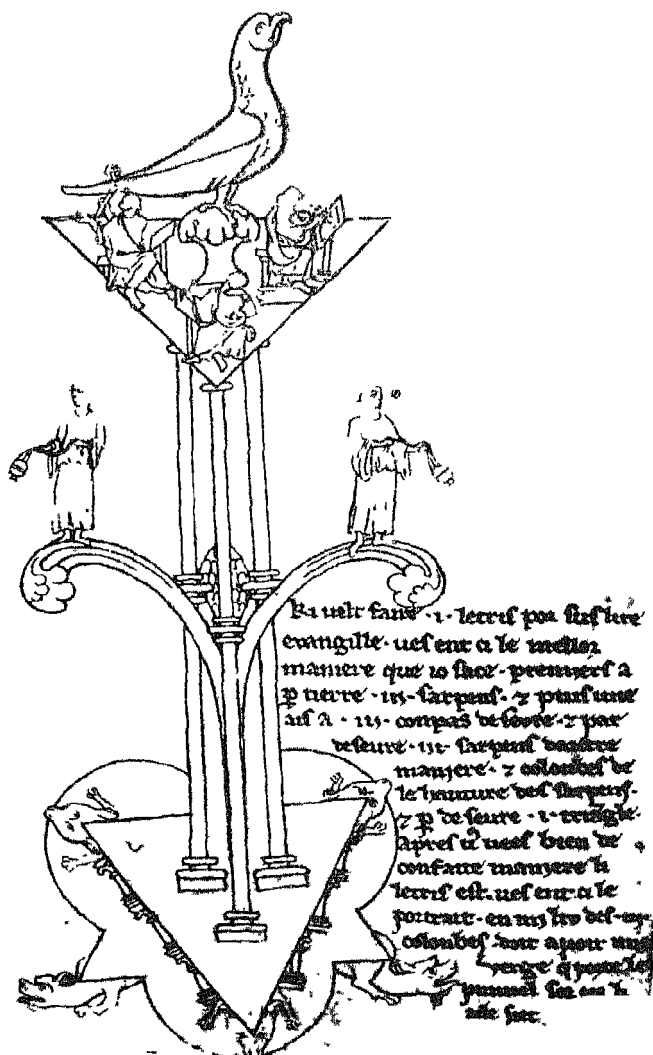 Ki velt faire ·i· letris por sus lire
evangille· ves ent ci le mellor
maniere que io sace· premiers a
p tierre ·iii· sarpens· ⁊ puis une
ais a ·iii· compas deseure· ⁊ par
deseure ·iii· sarpens dautre
maniere· ⁊ colonbes de
le hauture des sarpens·
⁊ p deseure ·i· triangle·
apres vͦ vees bien de
confaite maniere li
letris est· ves ent ci le
portrait· en mi liu des ·iii·
colonbes doit avoir une
verge q porte le
pumiel sor coi li
aile siet·